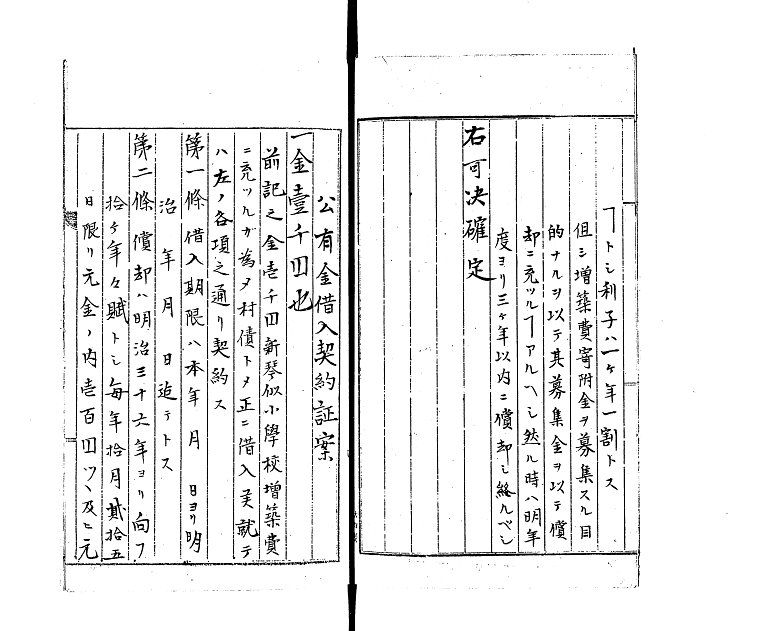 ヿトシ利子ハ一ヶ年一割トス
但シ増築費寄附金ヲ募集スル目
的ナルヲ以テ其募集金ヲ以テ償
却ニ充ツルヿアルヘシ然ル時ハ明年
度ヨリ三ヶ年以内ニ償却シ終ルベシ
右可決確定
公有金借入契約証案
一金壹千円也
前記之金壱千円新琴似小學校増築費
ニ充ツルガ為メ村債トメ正ニ借入候就テ
ハ左ノ各項之通リ契約ス
第一條借入期限ハ本年 月 日ヨリ明
治 年 月 日迠テトス
第二條償却ハ明治三十六年ヨリ向フ
拾ヶ年々賦トシ毎年拾月貳拾五
日限リ元金ノ内壱百円ツヽ及ヒ元